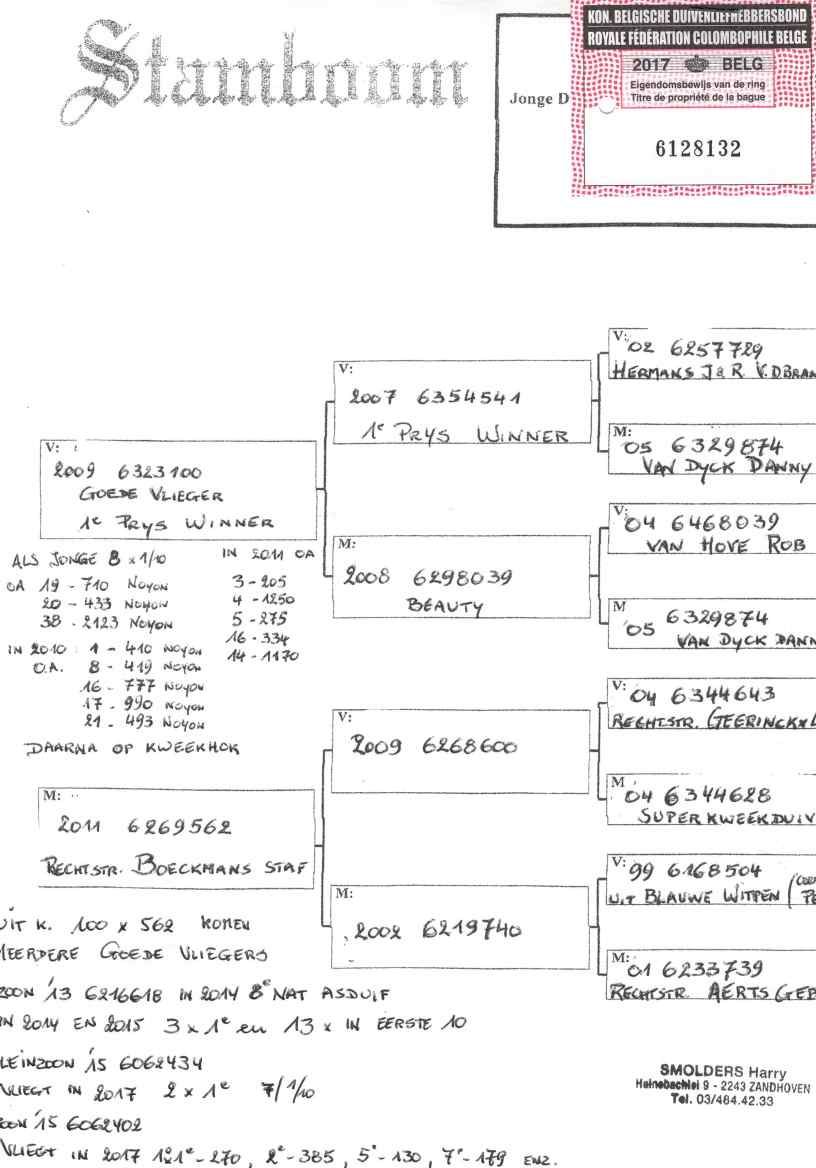 Stamboom
KON. BELGISCHE DUIVENLIEFHEBBERSBOND
ROYALE FÉDÉRATION COLOMBOPHILE BELGE
2017 BELG
Eigendomsbewijs van de ring
Titre de propriété de la bague
6128132
Jonge D
V:
02 6257729
HERMANS J & R V.D BRAN
V:
2007 6354541
1e PRYS WINNER
M:
05 6329874
VAN DYCK DANNY
V:
2009 6323100
GOEDE VLIEGER
1e PRYS WINNER
V:
04 6468039
VAN HOVE ROB
M:
2008 6298039
BEAUTY
M
05 6329874
VAN DYCK DANN
ALS JONGE 8 x 1/10
OA 19 - 710 NOYON
20 - 433 NOYON
38 - 2123 NOYON
IN 2010 : 1 - 410 NOYON
O.A. 8 - 419 NOYON
16 - 777 NOYON
17 - 990 NOYON
21 - 493 NOYON
DAARNA OP KWEEKHOK
IN 2011 OA
3 - 205
4 - 1250
5 - 275
16 - 334
14 - 1170
V:
04 6344643
RECHTSTR. GEERINCKX
V:
2009 6268600
M
04 6344628
SUPER KWEEKDUIV
M:
2011 6269562
RECHTSTR. BOECKMANS STAF
V:
99 6168504
UIT BLAUWE WITPEN
M:
2002 6219740
M:
01 6233739
RECHTSTR. AERTS GEB
UIT K. 100 x 562 KOMEN
MEERDERE GOEDE VLIEGERS
ZOON '13 6216618 IN 2014 8e NAT ASDUIF
IN 2014 EN 2015 3 x 1e en 13 x IN EERSTE 10
LEINZOON '15 6062434
VLIEGT IN 2017 2 x 1e 7/1/10
ZOON '15 6062402
VLIEGT IN 2017 1e - 270, 2e - 385, 5e - 130, 7e - 179 ENZ.
SMOLDERS Harry
9 - 2243 ZANDHOVEN
Tel. 03/484.42.33